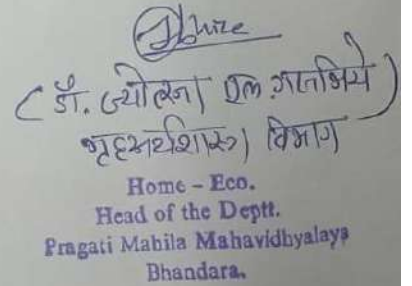 (डॉ. ज्योत्स्ना एल. गजभिये)
गृहअर्थशास्त्र विभाग
Home - Eco.
Head of the Deptt.
Pragati Mahila Mahavidhyalaya
Bhandara.